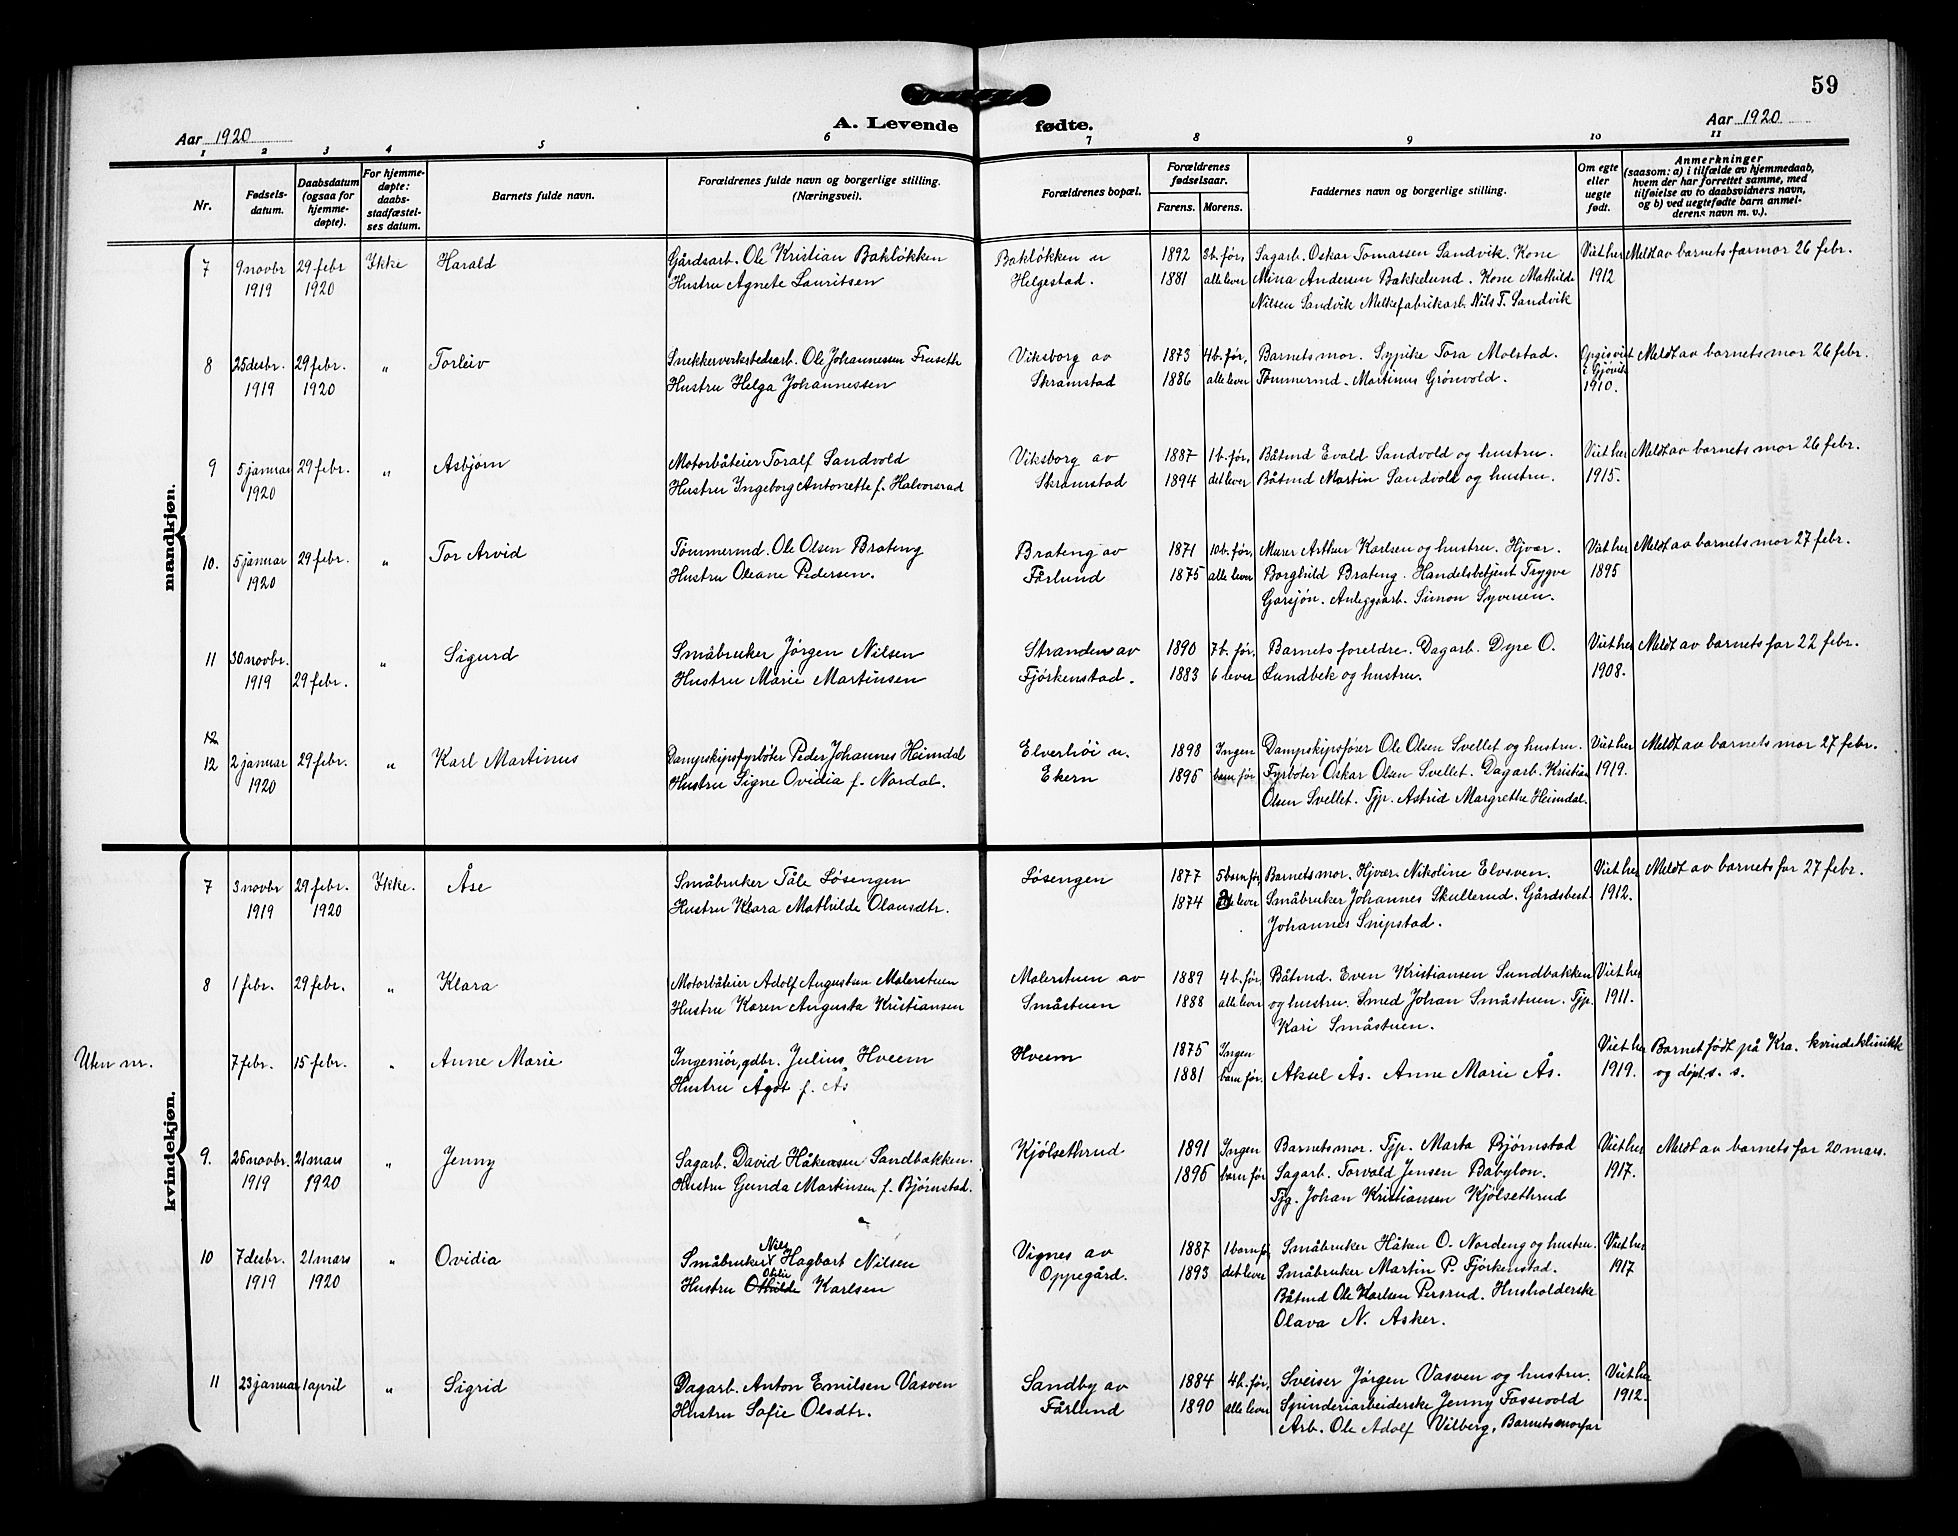 59
A. Levende fødte.
Aar 1920
Aar 1920
1 2 3 4 5 6 7 8 9 10 11
Nr.
Fødsels-
datum.
Daabsdatum
(ogsaa for
hjemme-
døpte).
For hjemme-
døpte:
daabs-
stadfæstel-
ses datum.
Barnets fulde navn.
Forældrenes fulde navn og borgerlige stilling.
(Næringsvei).
Forældrenes bopæl.
Forældrenes
fødselsaar.
Farens. Morens.
Faddernes navn og borgerlige stilling.
Om egte
eller
uegte
født.
Anmerkninger
(saasom: a) i tilfælde av hjemmedaab,
hvem der har forrettet samme, med
tilføielse av to daabsvidners navn,
og b) ved uegtefødte barn anmel-
derens navn m. v.).
mandkjøn.
7 9 novbr 29 febr Ikke Harald Gårdsarb. Ole Kristian Bakløkken Bakløkken u 1892 3 b. før, Sagarb. Oskar Tomassen Sandvik. Kone Viet her Meldt av barnets farmor 26 febr.
1919 1920 Hustru Agnete Lauritsen Helgestad. 1881 alle lever Mina Andersen Bakkelund. Kone Mathilde 1912
Nilsen Sandvik Melkefabrikarb. Nils T. Sandvik
8 25 desbr. 29 febr. „ Torleiv Snekkerverkstedsarb. Ole Johannessen Fruseth Viksborg av 1873 4 b. før, Barnets mor. Sypike Tora Molstad. Opgis viet Meldt av barnets mor 26 febr.
1919 1920 Hustru Helga Johannessen Skramstad 1886 alle lever Tømmermd. Martinus Grönvold. i Gjøvik
1910.
9 5 januar 29 febr. „ Asbjørn Motorbåteier Toralf Sandvold Viksborg av 1887 1 b. før, Båtmd Evald Sandvold og hustru. Viet her Meldt av barnets mor 26 febr.
1920 Hustru Ingeborg Antonette f. Halvorsrud Skramstad 1894 det lever Båtmd Martin Sandvold og hustru. 1915.
10. 5 januar 29 febr. „ Tor Arvid Tömmermd. Ole Olsen Brateng Brateng av 1871 10 b. før, Murer Arthur Karlsen og hustru. Hjvær. Viet her Meldt av barnets mor 27 febr.
1920 Hustru Oleane Pedersen. Fårlund 1875 alle lever Borghild Brateng. Handelsbetjent Trygve 1895
Garsjøn. Anleggsarb. Simon Syversen.
11 30 novbr. „ Sigurd Småbruker Jørgen Nilsen Stranden av 1890 7 b. før, Barnets foreldre. Dagarb. Dyre O. Viet her Meldt av barnets far 22 febr.
1919 29 febr. Hustru Marie Martinsen Fjørkenstad. 1883 6 lever Lundbek og hustru. 1908.
12
12 2 januar 29 febr. „ Karl Martinus Dampskipsfyrbøter Peder Johannes Heimdal Elverhöi u. 1898 Ingen Dampskipsfører Ole Olsen Svellet og hustru. Viet her Meldt av barnets mor 27 febr.
1920 Hustru Signe Ovidia f. Nordal. Ekern 1895 barn før Fyrböter Oskar Olsen Svellet. Dagarb. Kristian 1919.
Olsen Svellet. Tjp. Astrid Margrethe Heimdal.
kvindekjøn.
7 3 novbr 29 febr. Ikke. Åse Småbruker Tåle Løsengen Løsengen 1877 5 barn før, Barnets mor. Hjvær. Nikoline Elvsven. Viet her Meldt av barnets far 27 febr.
1919 1920 Hustru Klara Mathilde Olausdtr. 1874 2 lever Småbruker Johannes Skullerud. Gårdsbest. 1912.
Johannes Snipstad.
8 1 febr. 29 febr. „ Klara Motorbåteier Adolf Augustun Malerstuen Malerstuen av 1889 4 b. før, Båtmd. Even Kristiansen Sundbakken Viet her
Hustru Karen Augusta Kristiansen Småstuen 1888 alle lever og hustru. Smed Johan Småstuen. Tjp. 1911.
Kari Småstuen.
Uten nr. 7 febr. 15 febr. „ Anne Marie Ingeniör, gdbr. Julius Hveem Hveem 1875 Ingen Viet her Barnet født på Kra. kvindeklinikk
Hustru Ågot f. Ås 1881 barn før. Aksel Ås. Anne Marie Ås. 1919. og døpt s. s.
9. 26 novbr. 21 mars „ Jenny Sagarb. David Håkensen Sandbakken. Kjölsethrud 1891 Ingen Barnets mor. Tjp. Marta Bjørnstad Viet her Meldt av barnets far 20 mars.
1919 1920 Hustru Gunda Martinsen f. Bjørnstad. 1895 barn før Sagarb. Torvald Jensen Babylon. 1917.
Tjg. Johan Kristiansen Kjölsethrud
10 7 desbr. 21 mars „ Ovidia Småbruker Nils Hagbart Nilsen Vignes av 1887 1 barn før Småbruker Håken O. Nordeng og hustru. Viet her
1919 1920 Hustru Othilde Otilie Karlsen Oppegård. 1893 det lever Småbruker Martin P. Fjørkenstad. 1917
Båtmd Ole Karlsen Persrud. Husholderske
Olava N. Asker.
11 23 januar 1 april „ Sigrid Dagarb. Anton Emilsen Vasven Sandby av 1884 4 b. før, Sveiser Jørgen Vasven og hustru. Viet her
Hustru Sofie Olsdtr. Fårlund 1890 alle lever Spinderiarbeiderske Jenny Fossevold 1912.
Arb. Ole Adolf Vilberg, Barnets morfar